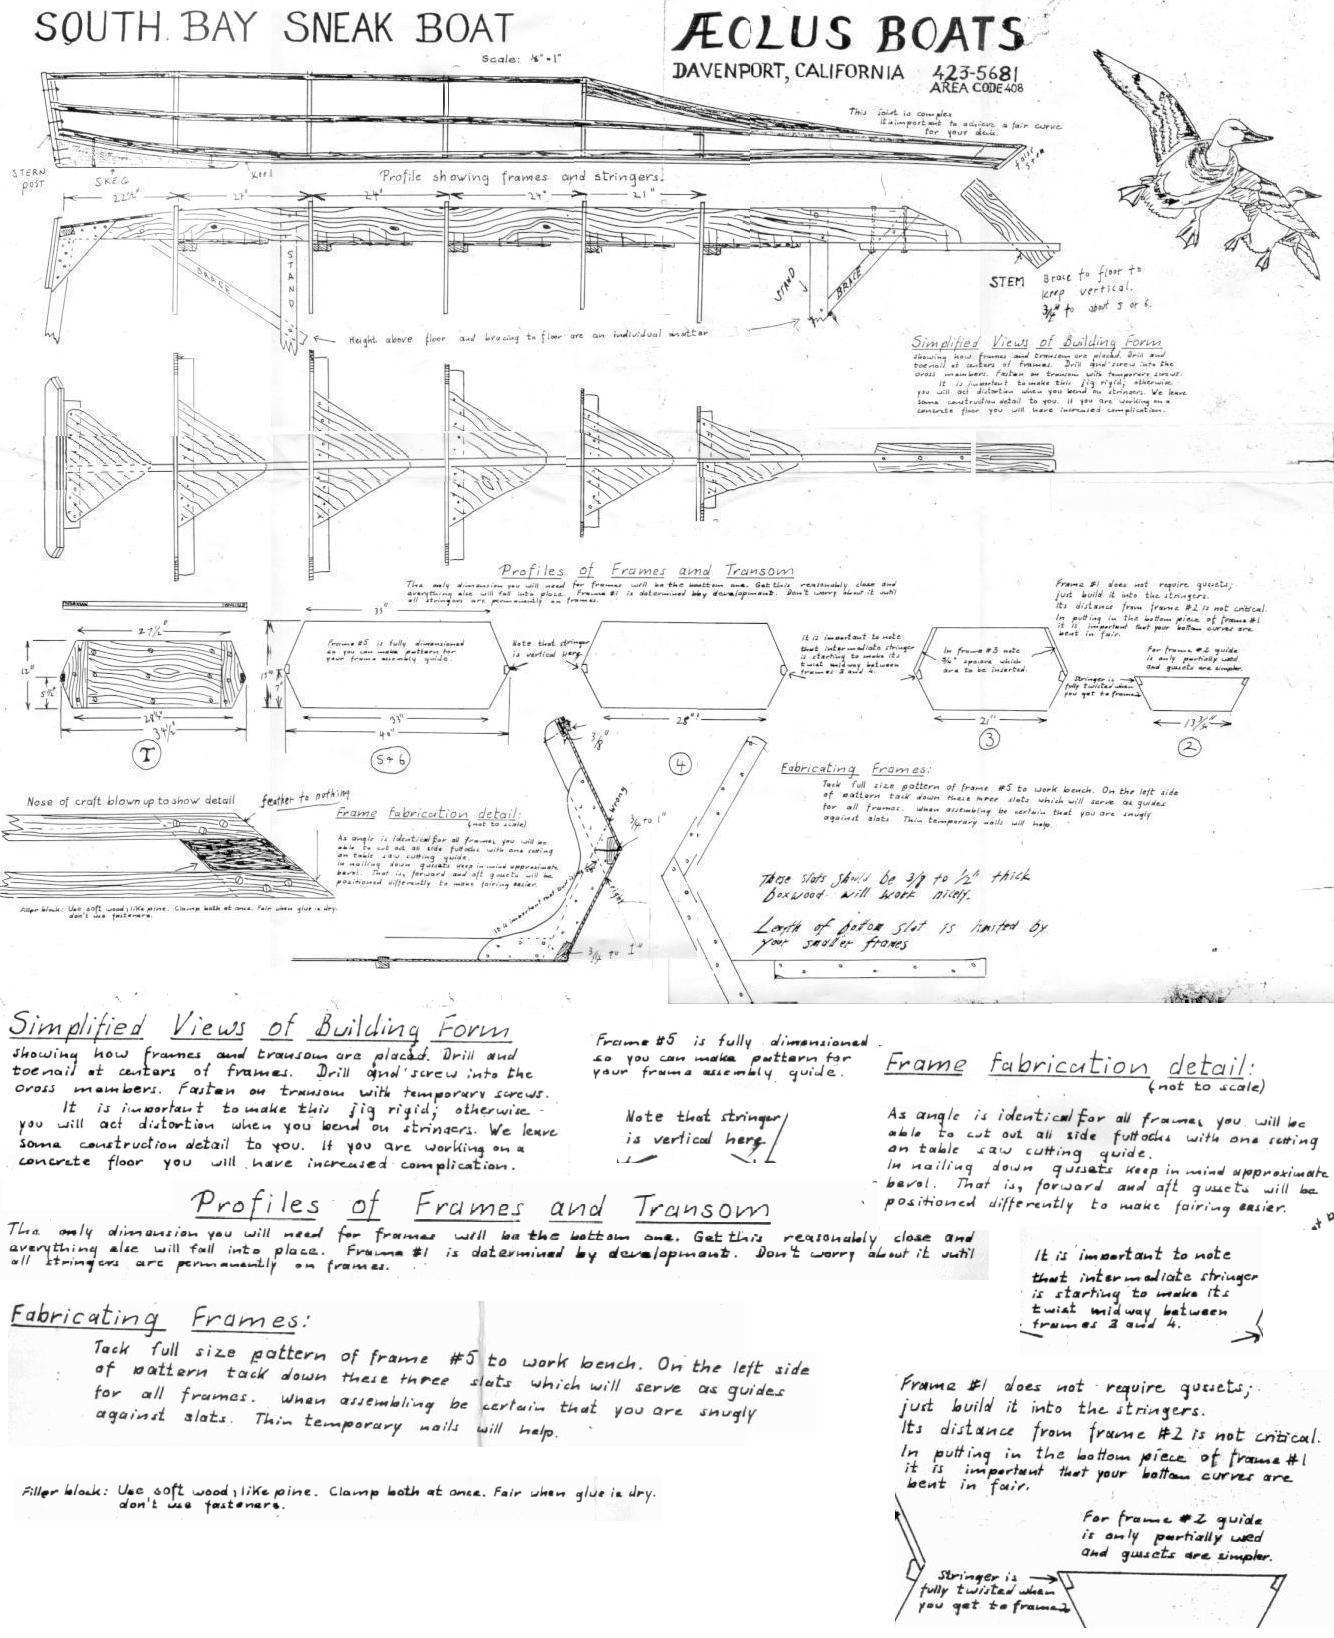 SOUTH BAY SNEAK BOAT
Scale: ⅛"=1"
ÆOLUS BOATS
DAVENPORT, CALIFORNIA 423-5681
AREA CODE 408
This joint is complex
It is important to achieve a fair curve
for your deck.
STERN
POST
SKEG
Keel
Profile showing frames and stringers.
22½"
24"
24"
24"
21"
STAND
BRACE
STAND
BRACE
STEM
Brace to floor to
keep vertical.
3/4" to about 5 or 6.
Height above floor and bracing to floor are an individual matter
Simplified Views of Building Form
showing how frames and transom are placed. Drill and
toenail at centers of frames. Drill and screw into the
cross members. Fasten on transom with temporary screws.
It is important to make this jig rigid; otherwise
you will act distortion when you bend on stringers. We leave
some construction detail to you. If you are working on a
concrete floor you will have increased complication.
Profiles of Frames and Transom
The only dimension you will need for frames will be the bottom one. Get this reasonably close and
everything else will fall into place. Frame #1 is determined by development. Don't worry about it until
all stringers are permanently on frames.
Frame #1 does not require gussets;
just build it into the stringers.
Its distance from frame #2 is not critical.
In putting in the bottom piece of frame #1
it is important that your bottom curves are
bent in fair.
27½"
12"
5½"
28¼"
34½"
T
33"
Frame #5 is fully dimensioned
so you can make pattern for
your frame assembly guide.
7"
33"
40"
5+6
Note that stringer
is vertical here
28"
4
It is important to note
that intermediate stringer
is starting to make its
twist midway between
frames 3 and 4.
In frame #3 note
3/4" spacers which
are to be inserted.
21"
3
For frame #2 guide
is only partially used
and gussets are simpler.
Stringer is
fully twisted when
you get to frame 2
13¾"
2
Nose of craft blown up to show detail
feather to nothing
Filler block: Use soft wood, like pine. Clamp both at once. Fair when glue is dry.
don't use fasteners.
Frame Fabrication detail:
(not to scale)
As angle is identical for all frames, you will be
able to cut out all side futtocks with one setting
on table saw cutting guide.
In nailing down gussets keep in mind approximate
bevel. That is, forward and aft gussets will be
positioned differently to make fairing easier.
3/8"
wrong
3/4 to 1"
right
3/4 to 1"
Fabricating Frames:
Tack full size pattern of frame #5 to work bench. On the left side
of pattern tack down these three slats which will serve as guides
for all frames. When assembling be certain that you are snugly
against slats. Thin temporary nails will help.
These slats should be 3/8 to 1/2" thick
boxwood will work nicely.
Length of bottom slat is limited by
your smaller frames
Simplified Views of Building Form
showing how frames and transom are placed. Drill and
toenail at centers of frames. Drill and screw into the
cross members. Fasten on transom with temporary screws.
It is important to make this jig rigid; otherwise
you will act distortion when you bend on stringers. We leave
some construction detail to you. If you are working on a
concrete floor you will have increased complication.
Frame #5 is fully dimensioned
so you can make pattern for
your frame assembly guide.
Note that stringer
is vertical here
Frame Fabrication detail:
(not to scale)
As angle is identical for all frames, you will be
able to cut out all side futtocks with one setting
on table saw cutting guide.
In nailing down gussets keep in mind approximate
bevel. That is, forward and aft gussets will be
positioned differently to make fairing easier.
Profiles of Frames and Transom
The only dimension you will need for frames will be the bottom one. Get this reasonably close and
everything else will fall into place. Frame #1 is determined by development. Don't worry about it until
all stringers are permanently on frames.
It is important to note
that intermediate stringer
is starting to make its
twist midway between
frames 3 and 4.
Fabricating Frames:
Tack full size pattern of frame #5 to work bench. On the left side
of pattern tack down these three slats which will serve as guides
for all frames. When assembling be certain that you are snugly
against slats. Thin temporary nails will help.
Frame #1 does not require gussets;
just build it into the stringers.
Its distance from frame #2 is not critical.
In putting in the bottom piece of frame #1
it is important that your bottom curves are
bent in fair.
Filler block: Use soft wood, like pine. Clamp both at once. Fair when glue is dry.
don't use fasteners.
For frame #2 guide
is only partially used
and gussets are simpler.
Stringer is
fully twisted when
you get to frame 2